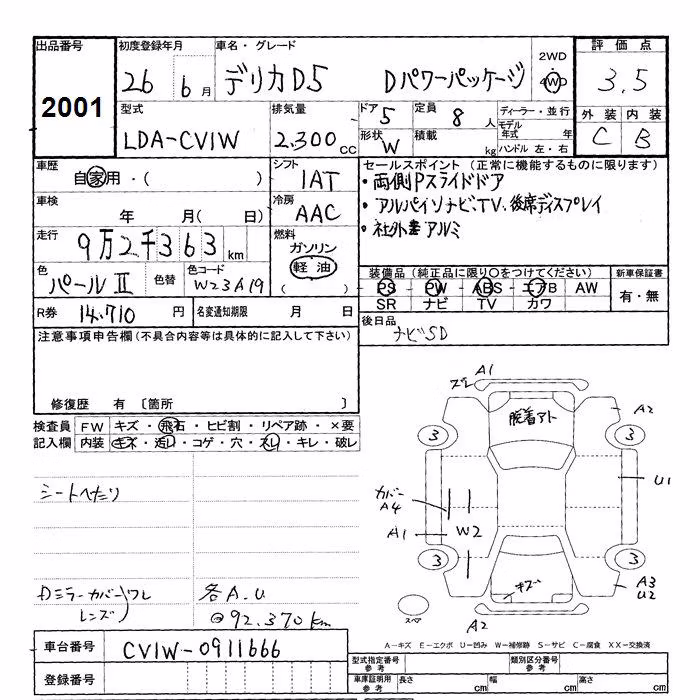 出品番号 初度登録年月 車名・グレード 2WD 評価点
2001 26 6月 デリカD5 Dパワーパッケージ 4WD 3.5
型式 排気量 ドア 5 定員 8人 ディーラー・並行 外装 内装
LDA-CV1W 2.300cc 形状 W 積載 kg モデル年式 年 C B
ハンドル 左・右
車歴 シフト セールスポイント (正常に機能するものに限ります)
自家用・( ) 1AT ・両側Pスライドドア
車検 冷房 ・アルパインナビ、TV、後席ディスプレイ
年 月( 日) AAC ・社外アルミ
走行 燃料
9万2千363km ガソリン
軽油
( )
色 色替 色コード 装備品 (純正品に限り○をつけてください) 新車保証書
パールⅡ W23A19 PS PW ABS エアB AW 有・無
SR ナビ TV カワ
R券 14.710円 名変通知期限 月 日 後日品
ナビSD
注意事項申告欄(不具合内容等は具体的に記入して下さい)
修復歴 有 〔箇所 〕
検査員 FW キズ・飛石・ヒビ割・リペア跡・×要
記入欄 内装 キズ・汚レ・コゲ・穴・スレ・キレ・破レ
シートへたり
Dミラーカバー)ワレ
レンズ
各A.U
@92.370km
ズレ A1
脱着アト A2
3 3
カバー
A4
U1
A1 W2
3 3
キズ A3
U2
スペア A2
A-キズ E-エクボ U-凹み W-補修跡 S-サビ C-腐食 XX-交換済
車台番号 CV1W-0911666
登録番号
型式指定番号 参考 類別区分番号 参考
車庫証明用 参考 長さ cm 幅 cm 高さ cm